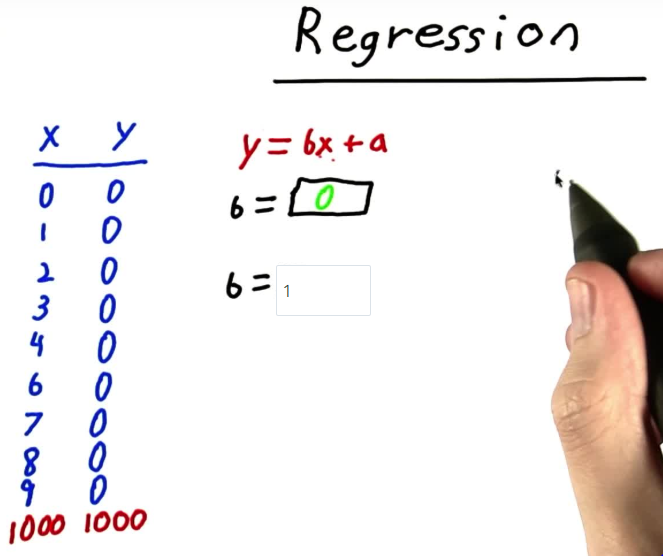 Regression
x y
0 0
1 0
2 0
3 0
4 0
6 0
7 0
8 0
9 0
1000 1000
y = bx + a
b = 0
b = 1